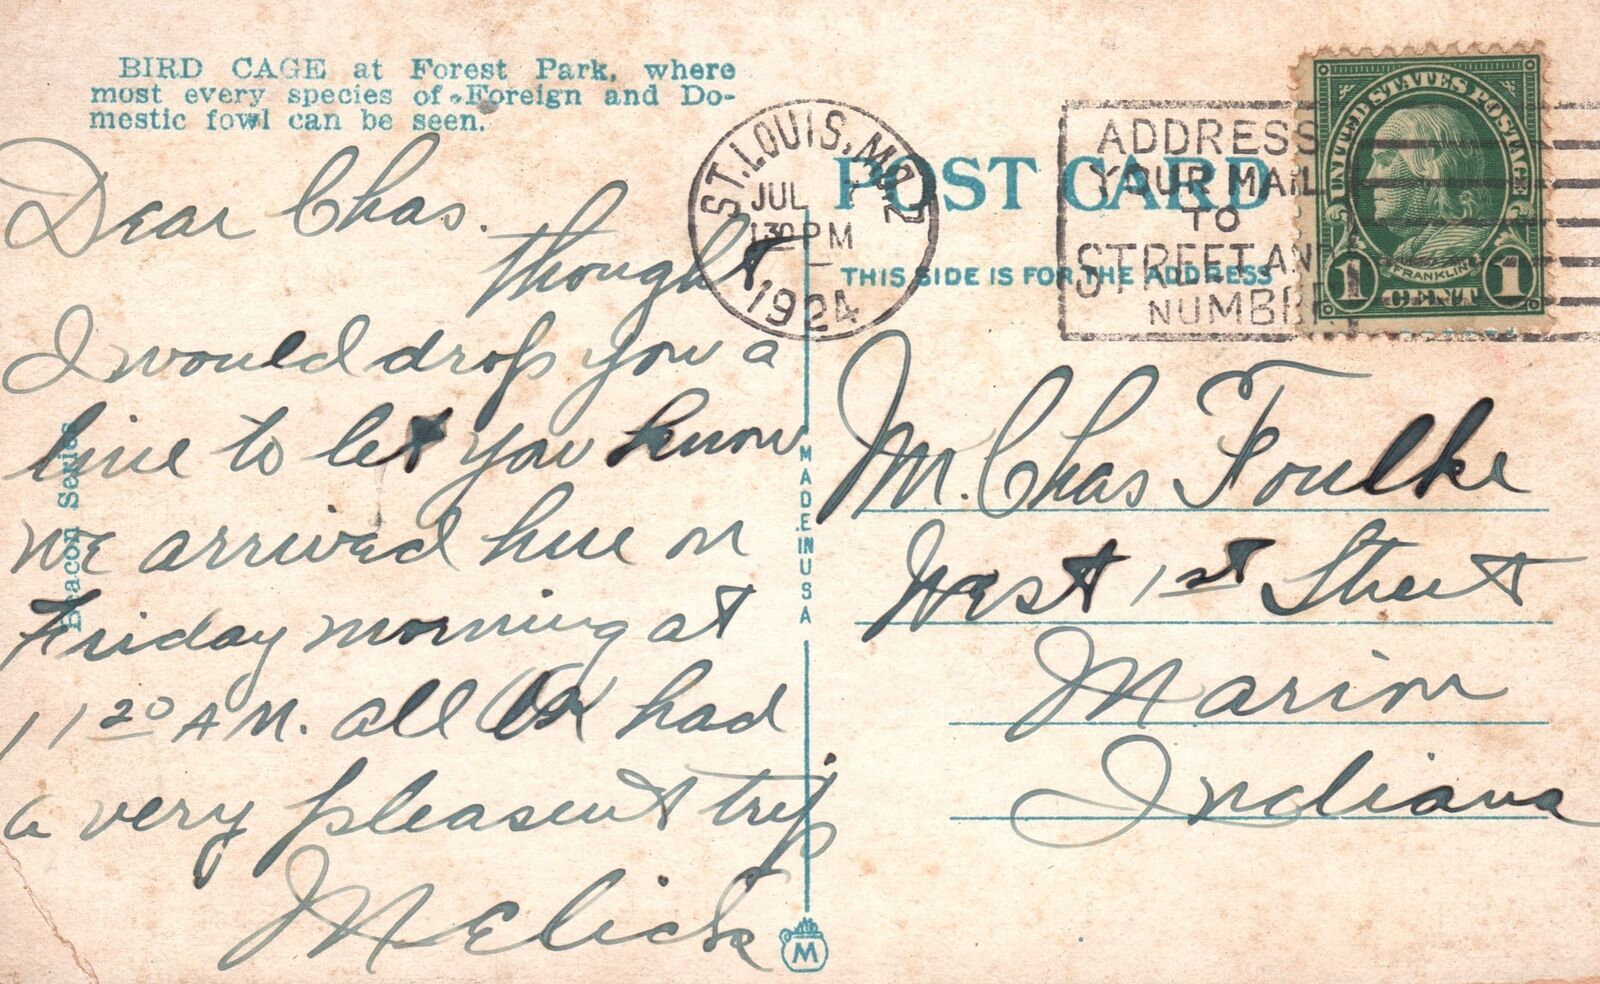 BIRD CAGE at Forest Park, where
most every species of Foreign and Do-
mestic fowl can be seen.
Dear Chas.
thought
I would drop you a
line to let you know
we arrived here on
Friday morning at
11 20 AM. all OK had
a very pleasent trip
Melick
Beacon Series
MADE IN USA
M
ST. LOUIS, MO.
JUL
130 PM
1924
POST CARD
THIS SIDE IS FOR THE ADDRESS
ADDRESS
YOUR MAIL
TO
STREET AN
NUMBE
UNITED STATES POSTAGE
FRANKLIN
1 CENT 1
M. Chas Foulke
West 1st Street
Marion
Indiana